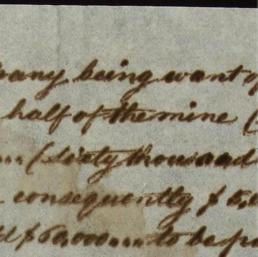 pany being want of
half of the mine (
(sixty thousand
consequently $ 5,
$60,000 to be pa